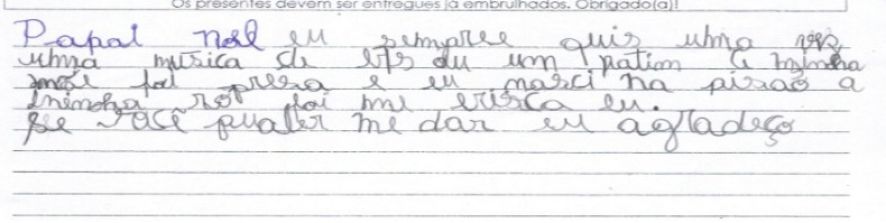 Os presentes devem ser entregues já embrulhados. Obrigado(a)!
Papai noel eu sempre quis uma
uma música de ou um patim a minha
mãe foi presa e eu nasci na pisão a
foi me eu.
se você puder me dar eu agradeço